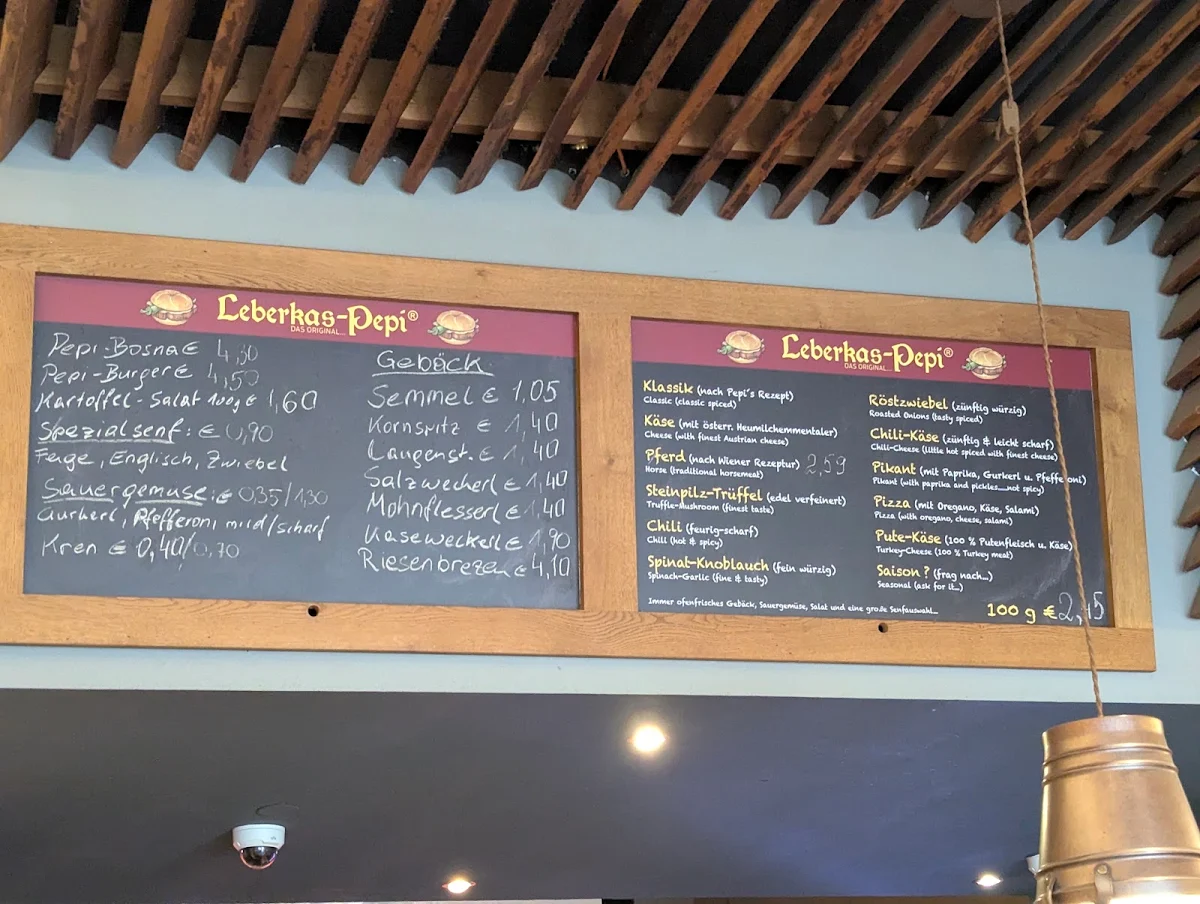 Leberkas-Pepi®
DAS ORIGINAL...
Pepi-Bosna € 4,30
Pepi-Burger € 4,50
Kartoffel-Salat 100g € 1,60
Spezialsenf: € 0,90
Feige, Englisch, Zwiebel
Sauergemüse: € 0,35/1,30
Gurkerl, Pfefferoni mild/scharf
Kren € 0,40/0,70
Gebäck
Semmel € 1,05
Kornspitz € 1,40
Laugenst. € 1,40
Salzweckerl € 1,40
Mohnflesserl € 1,40
Käseweckerl € 1,90
Riesenbrezen € 4,10
Leberkas-Pepi®
DAS ORIGINAL...
Klassik (nach Pepi's Rezept)
Classic (classic spiced)
Käse (mit österr. Heumilchemmentaler)
Cheese (with finest Austrian cheese)
Pferd (nach Wiener Rezeptur) 2,59
Horse (traditional horsemeat)
Steinpilz-Trüffel (edel verfeinert)
Truffle-Mushroom (finest taste)
Chili (feurig-scharf)
Chili (hot & spicy)
Spinat-Knoblauch (fein würzig)
Spinach-Garlic (fine & tasty)
Röstzwiebel (zünftig würzig)
Roasted Onions (tasty spiced)
Chili-Käse (zünftig & leicht scharf)
Chili-Cheese (little hot spiced with finest cheese)
Pikant (mit Paprika, Gurkerl u. Pfefferoni)
Pikant (with paprika and pickles....not spicy)
Pizza (mit Oregano, Käse, Salami)
Pizza (with oregano, cheese, salami)
Pute-Käse (100 % Putenfleisch u. Käse)
Turkey-Cheese (100 % Turkey meat)
Saison ? (frag nach...)
Seasonal (ask for it...)
Immer ofenfrisches Gebäck, Sauergemüse, Salat und eine große Senfauswahl...
100 g €